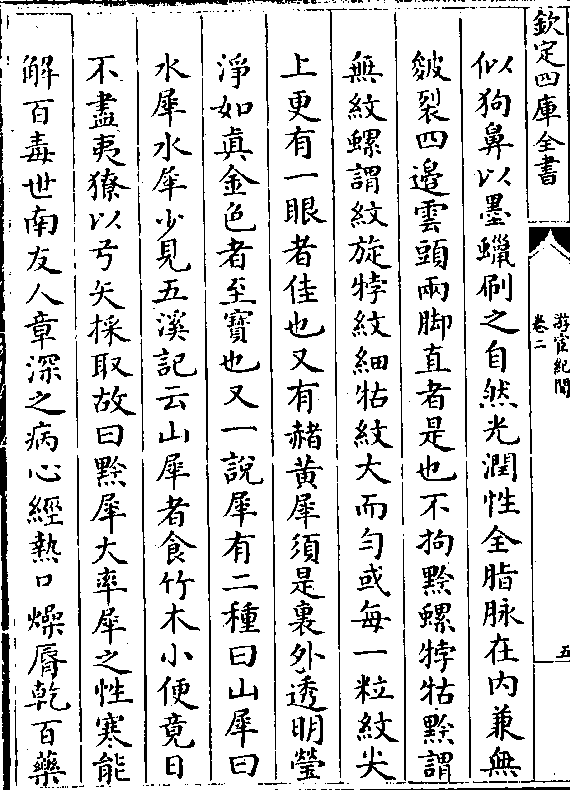 欽定四庫全書
游宦紀聞
卷二
五
似狗鼻以墨蠟刷之自然光潤性全脂脉在内兼無
皴裂四邉雲頭兩脚直者是也不拘黲螺㹀牯黲謂
無紋螺謂紋旋㹀紋細牯紋大而勻或每一粒紋尖
上更有一眼者佳也又有赭黄犀須是裏外透明瑩
淨如真金色者至寶也又一說犀有二種曰山犀曰
水犀水犀少見五溪記云山犀者食竹木小便竟日
不盡夷獠以弓矢採取故曰黲犀大率犀之性寒能
解百毒世南友人章深之病心經熱口燥脣乾百藥